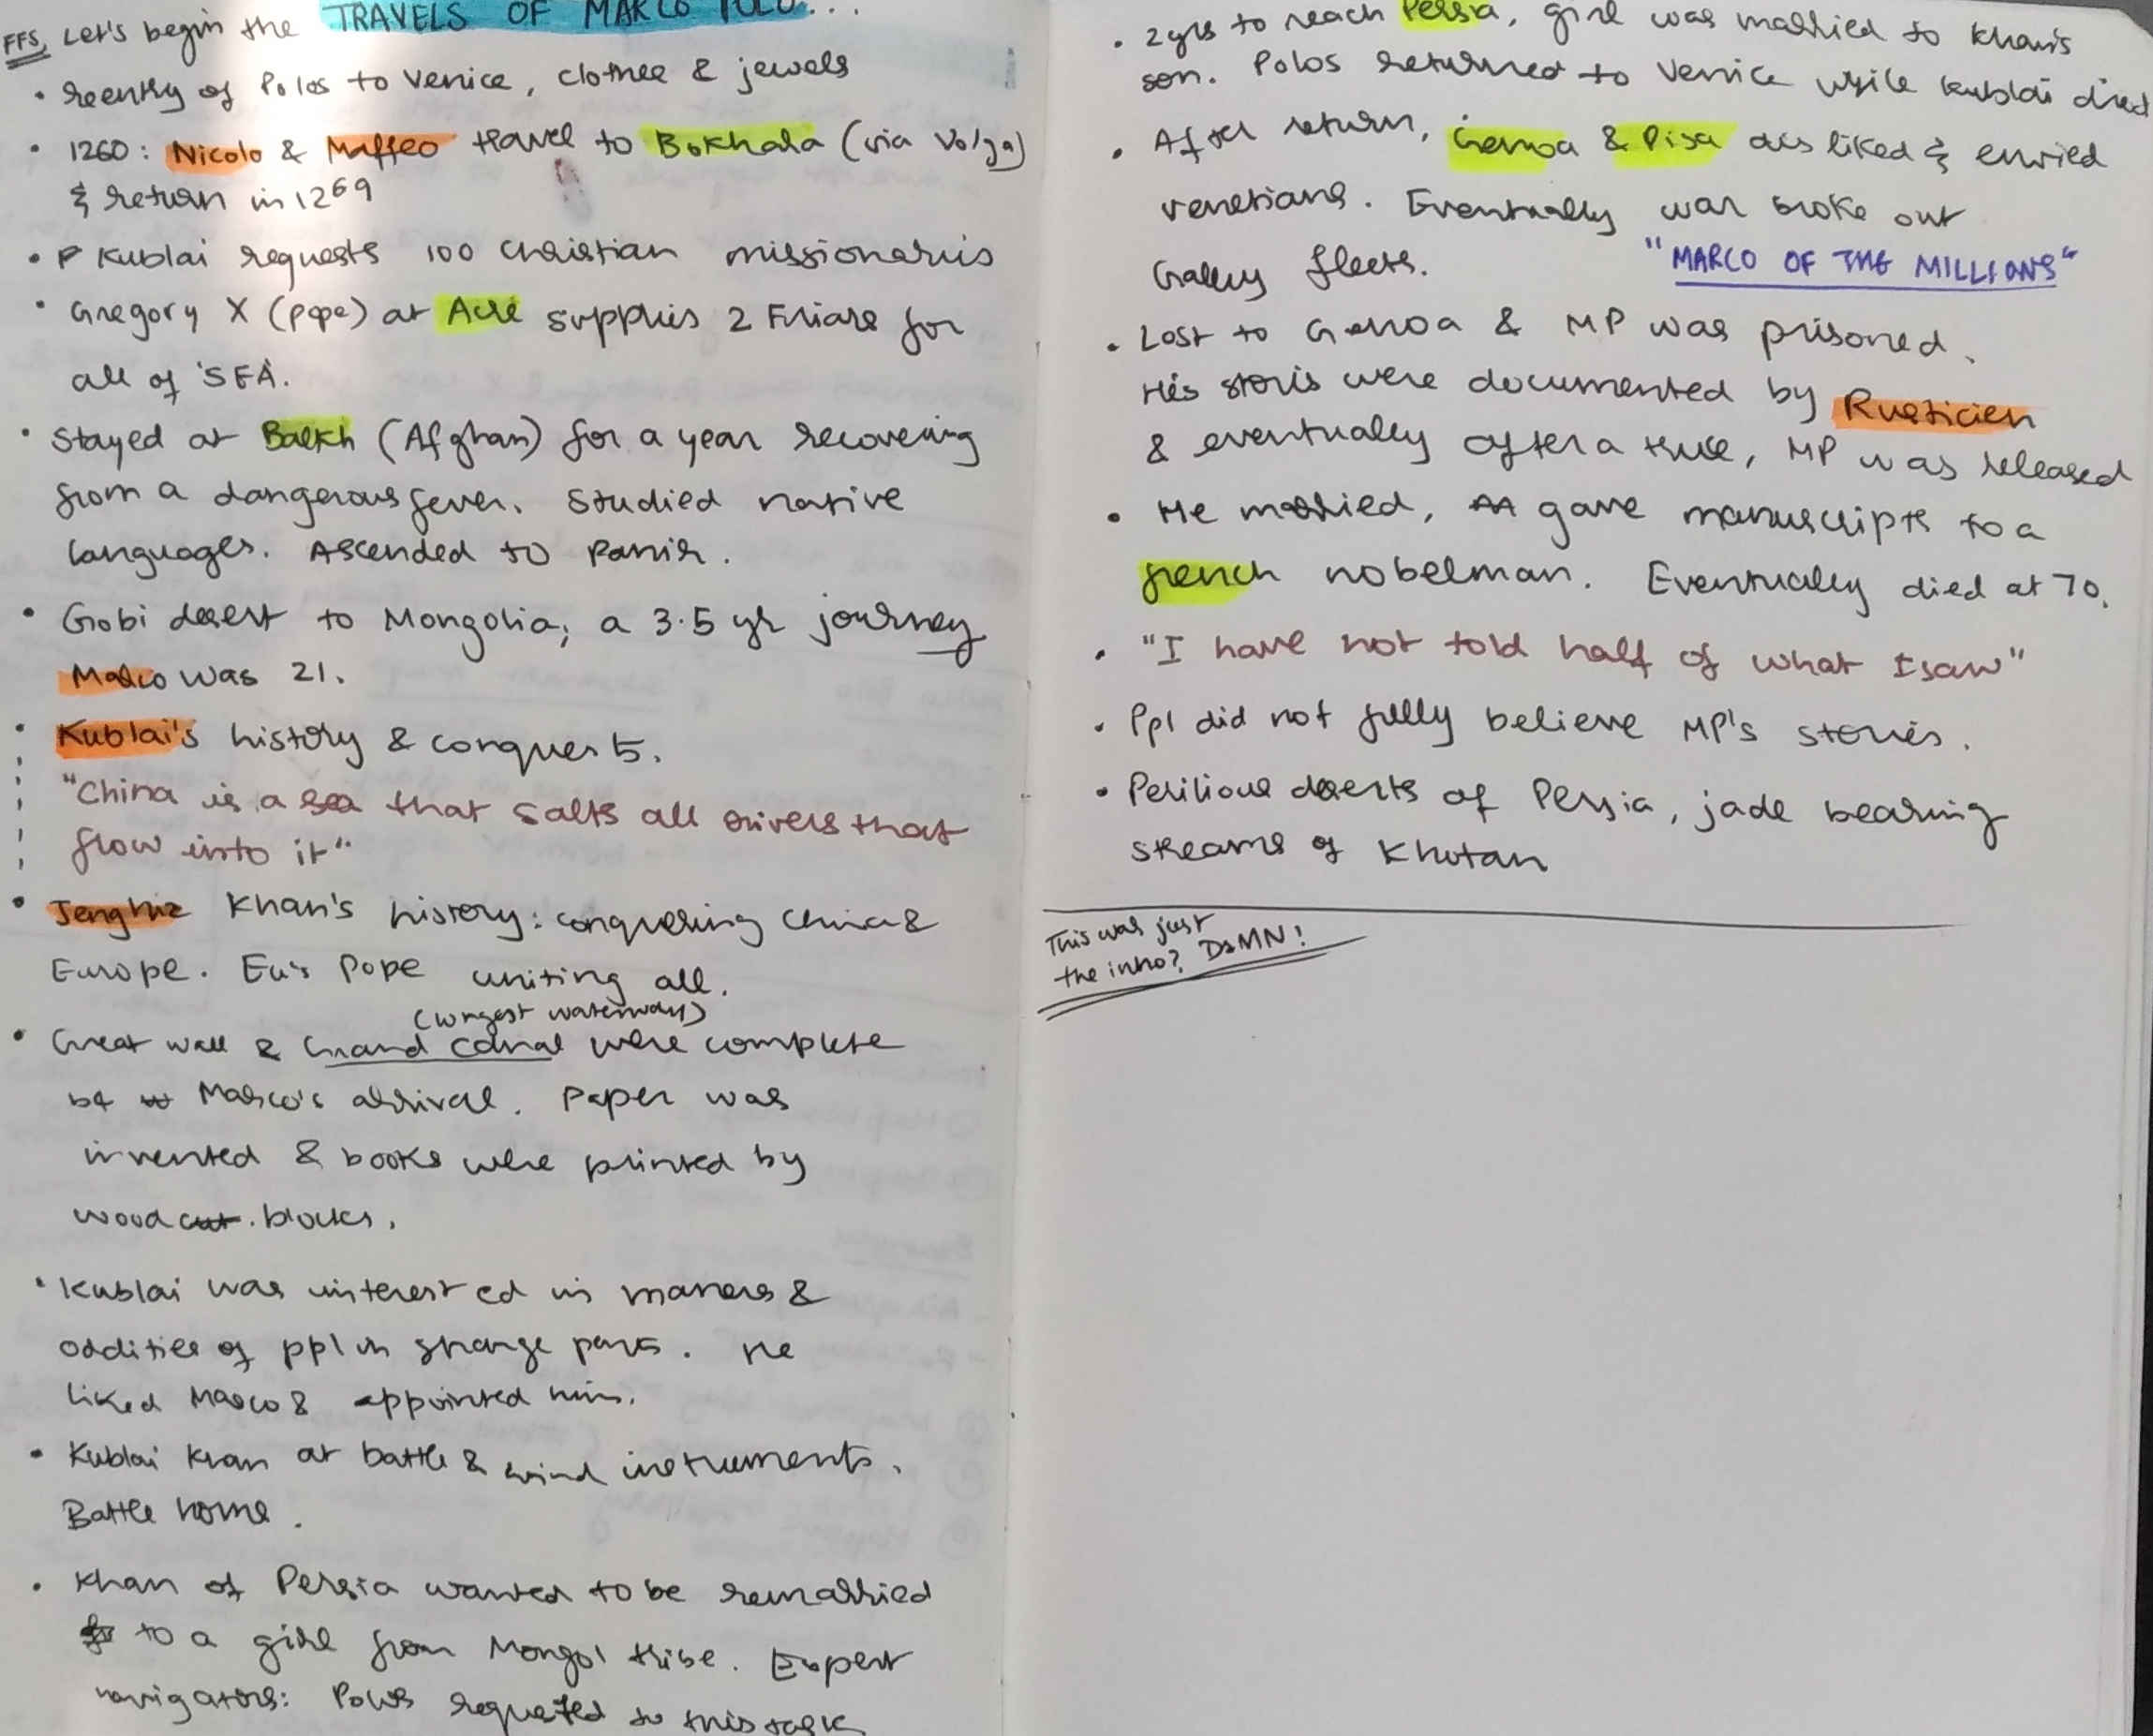 FFS, Let's begin the TRAVELS OF MARCO POLO...
• reentry of Polos to Venice, clothes & jewels
• 1260: Nicolo & Maffeo travel to Bokhara (via Volga)
& return in 1269
• Kublai requests 100 Christian missionaris
• Gregory X (pope) at Acre supplies 2 Friars for
all of 'SEA'.
• Stayed at Balkh (Afghan) for a year recovering
from a dangerous fever. Studied native
languages. Ascended to Pamir.
• Gobi desert to Mongolia; a 3.5 yr journey
Marco was 21.
• Kublai's history & conquests.
"China is a sea that salts all rivers that
flow into it"
• Jenghiz Khan's history: conquering China &
Europe. Eu's Pope uniting all.
(longest waterway)
• Great wall & Grand Canal were complete
b4 Marco's arrival. Paper was
invented & books were printed by
wood cut. blocks.
• Kublai was interested in maners &
oddities of ppl in strange parts. He
liked Marco & appointed him.
• Kublai Khan at battle & wind instruments.
Battle home.
• Khan of Persia wanted to be remarried
to a girl from Mongol tribe. Expert
navigators: Polos requested to this task
• 2yrs to reach Persia, girl was married to Khan's
son. Polos returned to Venice while Kublai died
• After return, Genoa & Pisa disliked & envied
venetians. Eventually war broke out
Galley fleets. "MARCO OF THE MILLIONS"
• Lost to Genoa & MP was prisoned.
His storis were documented by Rusticien
& eventually after a truce, MP was released
• He married, gave manuscripts to a
french nobelman. Eventually died at 70.
• "I have not told half of what I saw"
• Ppl did not fully believe MP's stories.
• Perilious deserts of Persia, jade bearing
streams of Khotan
This was just
the intro? DAMN!